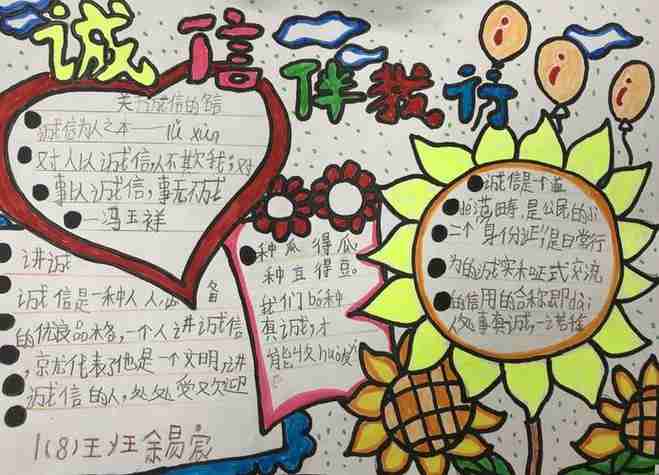 诚信伴教访
关于诚信的名言
诚信为人之本——lǔ xùn
对人以诚信,人不欺我;对
事以诚信,事无不成
——冯玉祥
讲诚
诚信是一种人人必 备
的优良品格,一个人讲诚信
,就代表了他是一个文明,讲
诚信的人,处处受欢迎
1(8)王 班 余易宸
种瓜得瓜
种豆得豆。
我们bō种
真诚,才
能收huò
诚信是个道
范畴,是公民的
二个"身份证",是日常行
为的诚实和正式交流
的信用的合称即dài
人处事真诚,